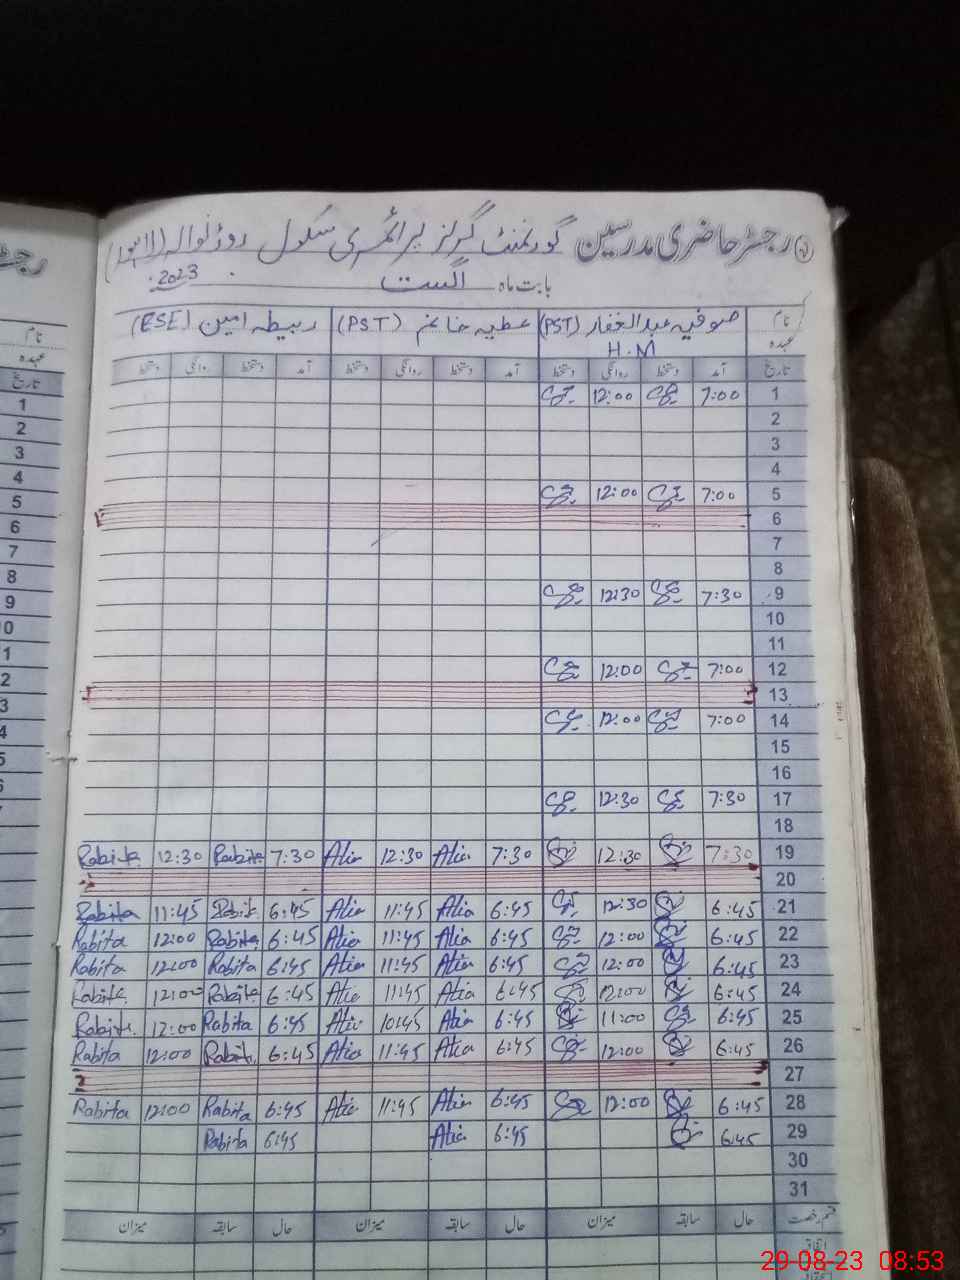 رجسٹر حاضری مدرسین گورنمنٹ گرلز پرائمری سکول روڑانوالہ (لاہور)
بابت ماہ اگست 2023
نام صوفیہ عبدالغفار (PST) عطیہ خانم (PST) ربیطہ امین (ESE)
عہدہ H.M
تاریخ آمد دستخط روانگی دستخط آمد دستخط روانگی دستخط آمد دستخط روانگی دستخط
1 7:00 12:00
2
3
4
5 7:00 12:00
6
7
8
9 7:30 12:30
10
11
12 7:00 12:00
13
14 7:00 12:00
15
16
17 7:30 12:30
18
19 7:30 12:30 7:30 Atia 12:30 Atia 7:30 Rabita 12:30 Rabita
20
21 6:45 12:30 6:45 Atia 11:45 Atia 6:45 Rabita 11:45 Rabita
22 6:45 12:00 6:45 Atia 11:45 Atia 6:45 Rabita 12:00 Rabita
23 6:45 12:00 6:45 Atia 11:45 Atia 6:45 Rabita 12:00 Rabita
24 6:45 12:00 6:45 Atia 11:45 Atia 6:45 Rabita 12:00 Rabita
25 6:45 11:00 6:45 Atia 10:45 Atia 6:45 Rabita 12:00 Rabita
26 6:45 12:00 6:45 Atia 11:45 Atia 6:45 Rabita 12:00 Rabita
27
28 6:45 12:00 6:45 Atia 11:45 Atia 6:45 Rabita 12:00 Rabita
29 6:45 6:45 Atia 6:45 Rabita
30
31
قسم رخصت حال سابقہ میزان حال سابقہ میزان حال سابقہ میزان
اتفاقیہ
رجسٹر
نام
عہدہ
تاریخ
1
2
3
4
5
6
7
8
9
0
1
2
3
4
5
6
29-08-23 08:53